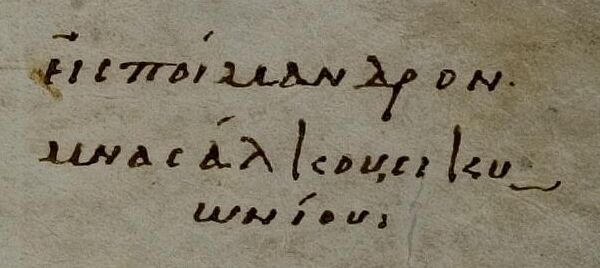 εἰς ποίμανδρον·
μνασάλκου σικυ_
ωνίου: